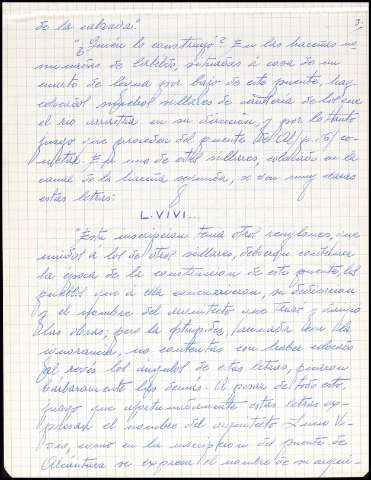 de la calzada".
3.
"¿Quién lo construyó? En las haceñas no-
minadas de Cabildo, situadas á cosa de un
cuarto de legua por bajo de este puente, hay
colocados muchos sillares de cantería de los que
el río arrastra en su dirección, y por lo tanto
juzgo que procedan del puente de Al (p. 16) co-
netar. En uno de estos sillares, colocado en la
canal de la haceña segunda, se ven muy claras
estas letras:
L. VIVI...
"Esta inscripción tenía otros renglones, que
unidos á los de otros sillares, debieron contener
la época de la construcción de este puente, los
pueblos que á ella concurrieron, su dedicación
y el nombre del arquitecto que trazó y
las obras; pero la estupidez, hermanada con la
ignorancia, no contentas con haber colocado
al revés los ángulos de estas letras, picaron
barbaramente las demás. A pesar de todo esto,
juzgo que aproximadamente estas letras ex-
presan el nombre del arquitecto Lucio Vi-
vio, como en la inscripción del puente de
Alcántara se expresa el nombre de su arqui-